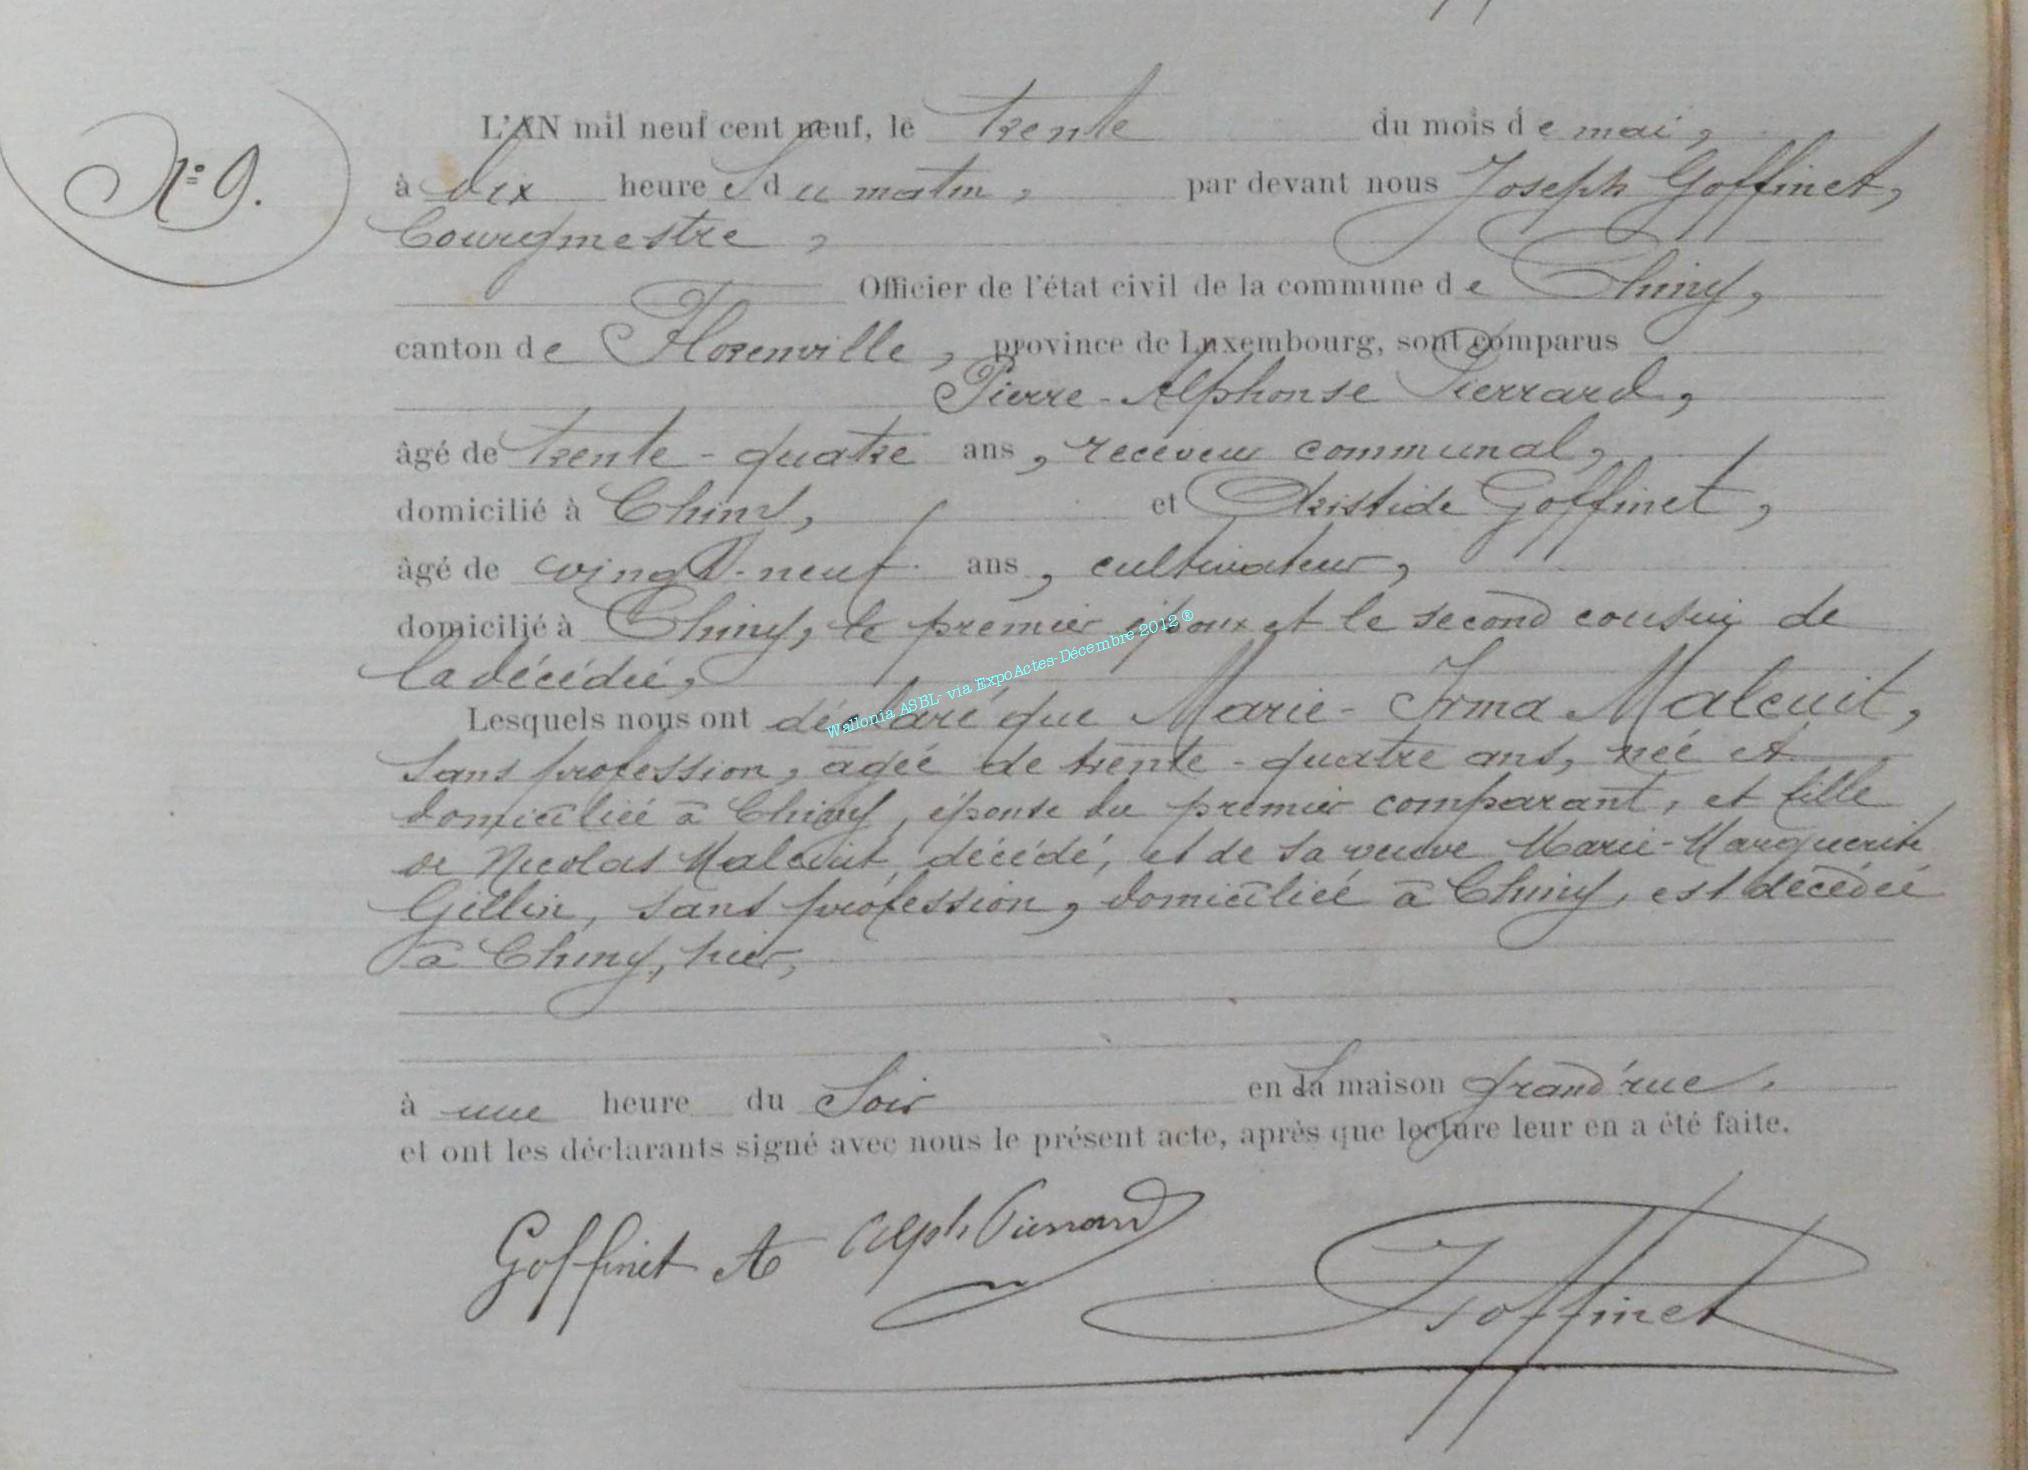 N° 9.
L'AN mil neuf cent neuf, le trente du mois de mai,
à dix heures du matin, par devant nous Joseph Goffinet,
bourgmestre,
Officier de l'état civil de la commune de Chiny,
canton de Florenville, province de Luxembourg, sont comparus
Pierre-Alphonse Pierrard,
âgé de trente-quatre ans, receveur communal,
domicilié à Chiny, et Aristide Goffinet,
âgé de vingt-neuf ans, cultivateur,
domicilié à Chiny, le premier époux et le second cousin de
la décédée,
Lesquels nous ont déclaré que Marie-Irma Malcuit,
sans profession, agée de trente-quatre ans, née et
domiciliée à Chiny, épouse du premier comparant, et fille
de Nicolas Malcuit, décédé, et de sa veuve Marie-Marguerite
Gillin, sans profession, domiciliée à Chiny, est décédée
à Chiny, hier,
à une heure du soir en sa maison grand'rue,
et ont les déclarants signé avec nous le présent acte, après que lecture leur en a été faite.
Goffinet A Alph Pierrard Goffinet
Wallonia ASBL- via ExpoActes-Décembre 2012 ®